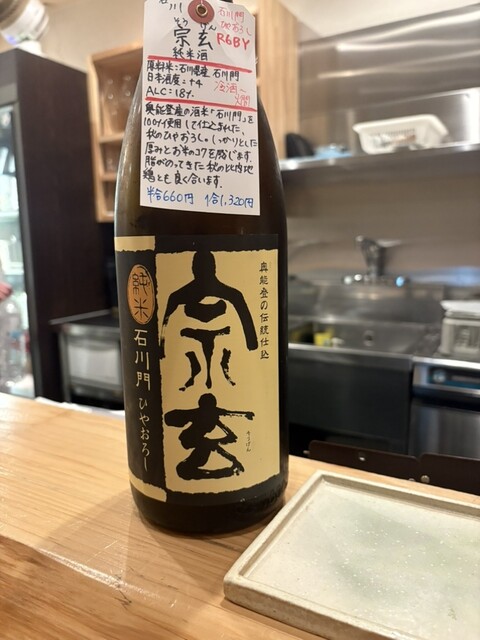 石川
宗玄
しゅう げん
純米酒
石川門
ひやおろし
R6BY
原料米:石川県産 石川門
日本酒度:+4
ALC:18%
冷酒〜
人間
奥能登産の酒米「石川門」を
100%使用して仕込まれた、
秋のひやおろし。しっかりとした
厚みとお米のコクを感じます。
脂がのってきた秋の比内地
鶏とも良く合います。
半合660円 1合1,320円
純米
石川門 ひやおろし
奥能登の伝統仕込
宗玄
そうげん